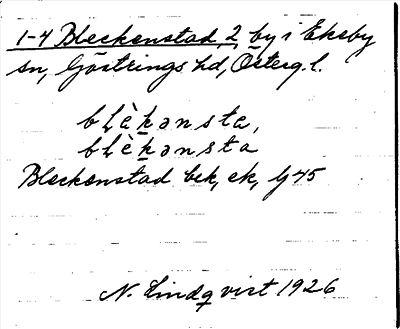 1-4 Bleckenstad, 2, by i Ekeby
sn, Göstrings hd, Österg. l.
blè̱kənsta,
blè̱kənsta
Bleckenstad bek, ek, Ij 45
N. Lindqvist 1926